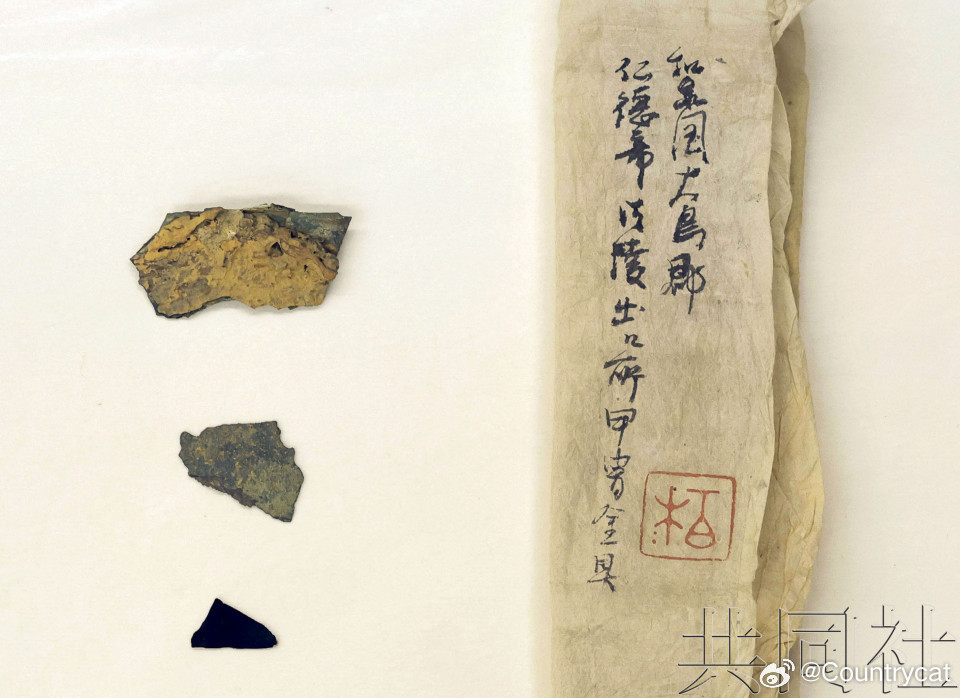 和泉国大鳥郡
仁徳帝御陵出所甲冑金具
柏
共同社
@Countrycat